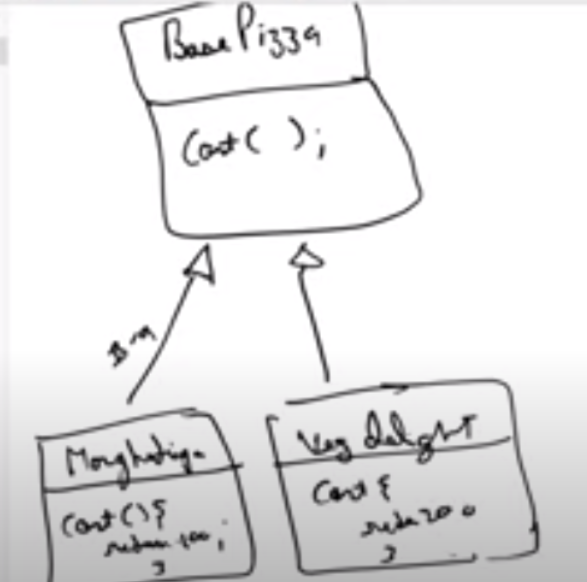 Base Pizza
Cost( );
is-a
Margherita
Cost(){
return 100;
}
Veg delight
Cost {
return 200
}